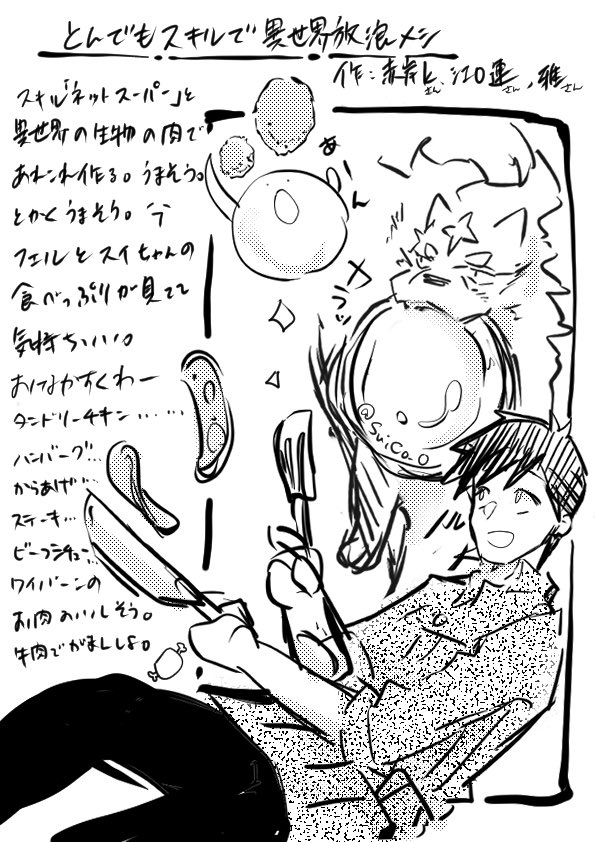 とんでもスキルで異世界放浪メシ
作:赤岸Kさん、江口連さん、雅さん
スキル「ネットスーパー」と
異世界の生物の肉で
あれこれ作る。うまそう。
とかくうまそう。今
フェルとスイちゃんの
食べっぷりが見てて
気持ちいい。
おなかすくわー
タンドリーチキン……
ハンバーグ…
からあげ…
ステーキ…
ビーフシチュー…
ワイバーンの
お肉おいしそう。
牛肉でがまんしよ。
あーん
@SuiCa_O